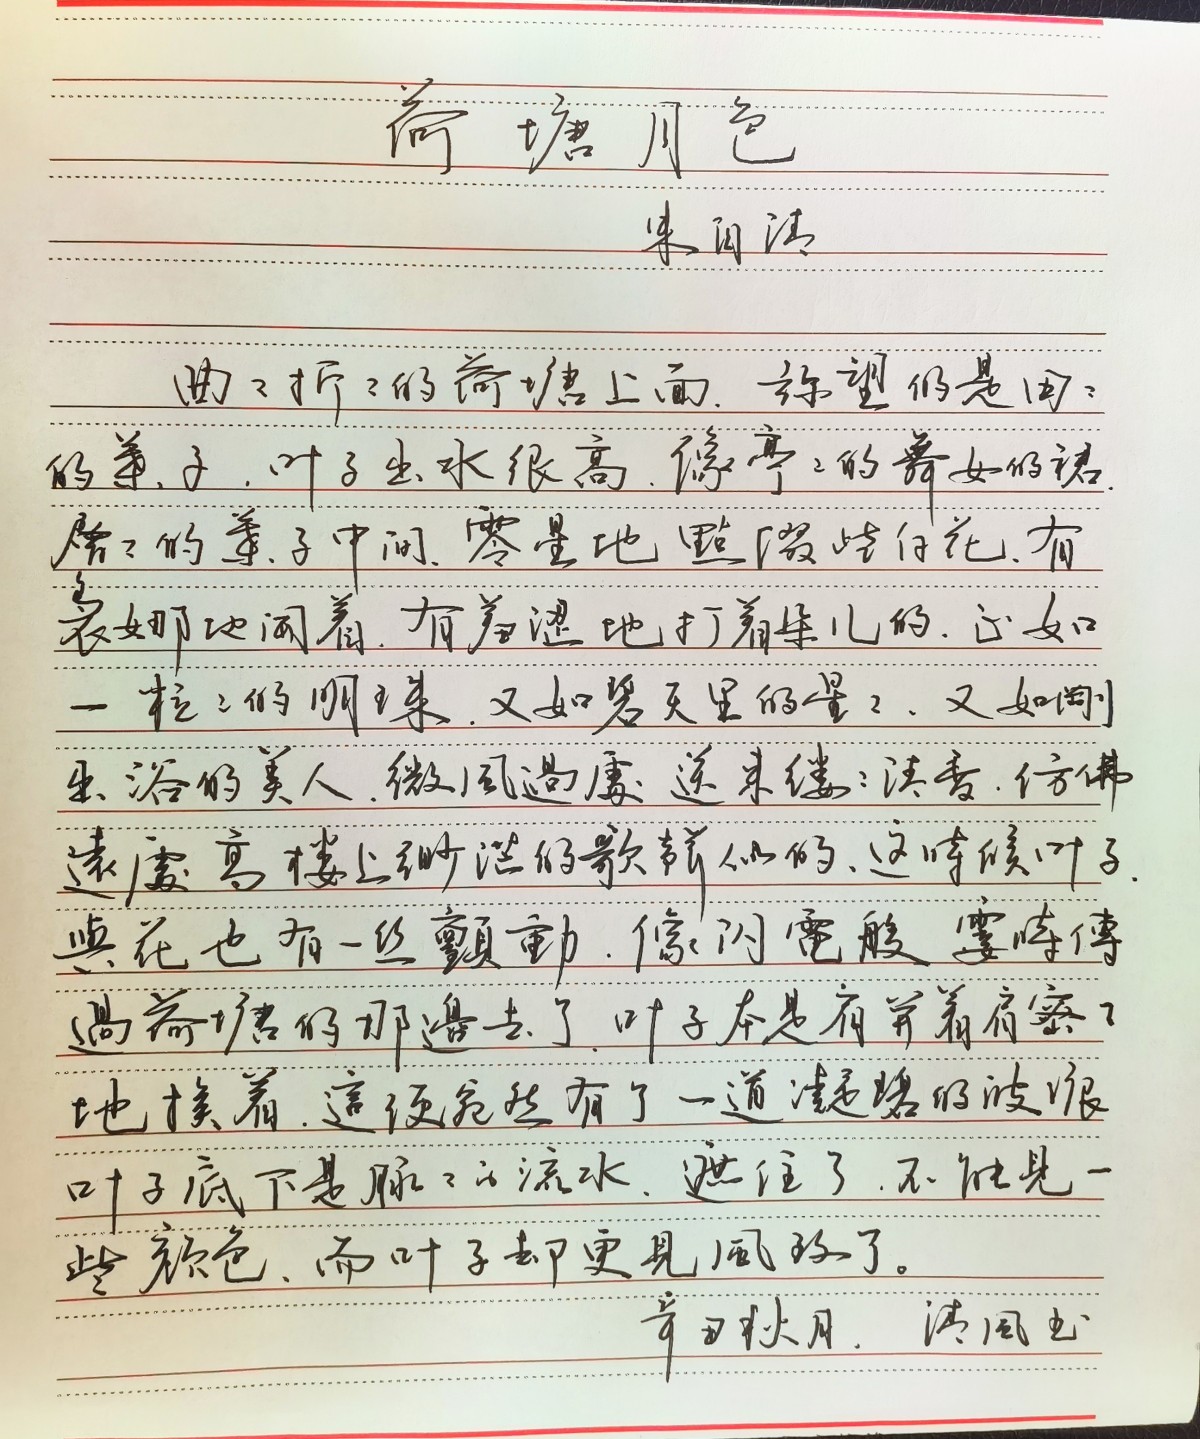 荷塘月色
朱自清
曲々折々的荷塘上面.弥望的是田々
的葉子.叶子出水很高.像亭々的舞女的裙.
層々的葉子中间.零星地點缀些白花.有
袅娜地開着.有羞涩地打着朵儿的.正如
一粒々的明珠.又如碧天里的星々.又如剛
出浴的美人.微風過處送来缕々清香.仿佛
遠處高楼上渺茫的歌聲似的.这時候叶子.
與花也有一丝顫動.像闪電般霎時傳
過荷塘的那邊去了.叶子本是肩并着肩密々
地挨着.這便宛然有了一道凝碧的波痕
叶子底下是脉々的流水.遮住了.不能見一
些顏色.而叶子却更見風致了。
辛丑秋月.清風书